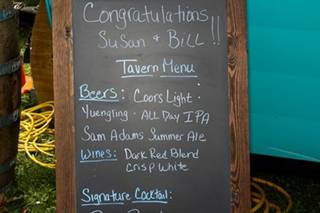 Congratulations
Susan & Bill!!
Tavern Menu
Beers: Coors Light ·
Yuengling · ALL DAY IPA
Sam Adams Summer Ale
Wines: Dark Red Blend
Crisp White
Signature Cocktail: